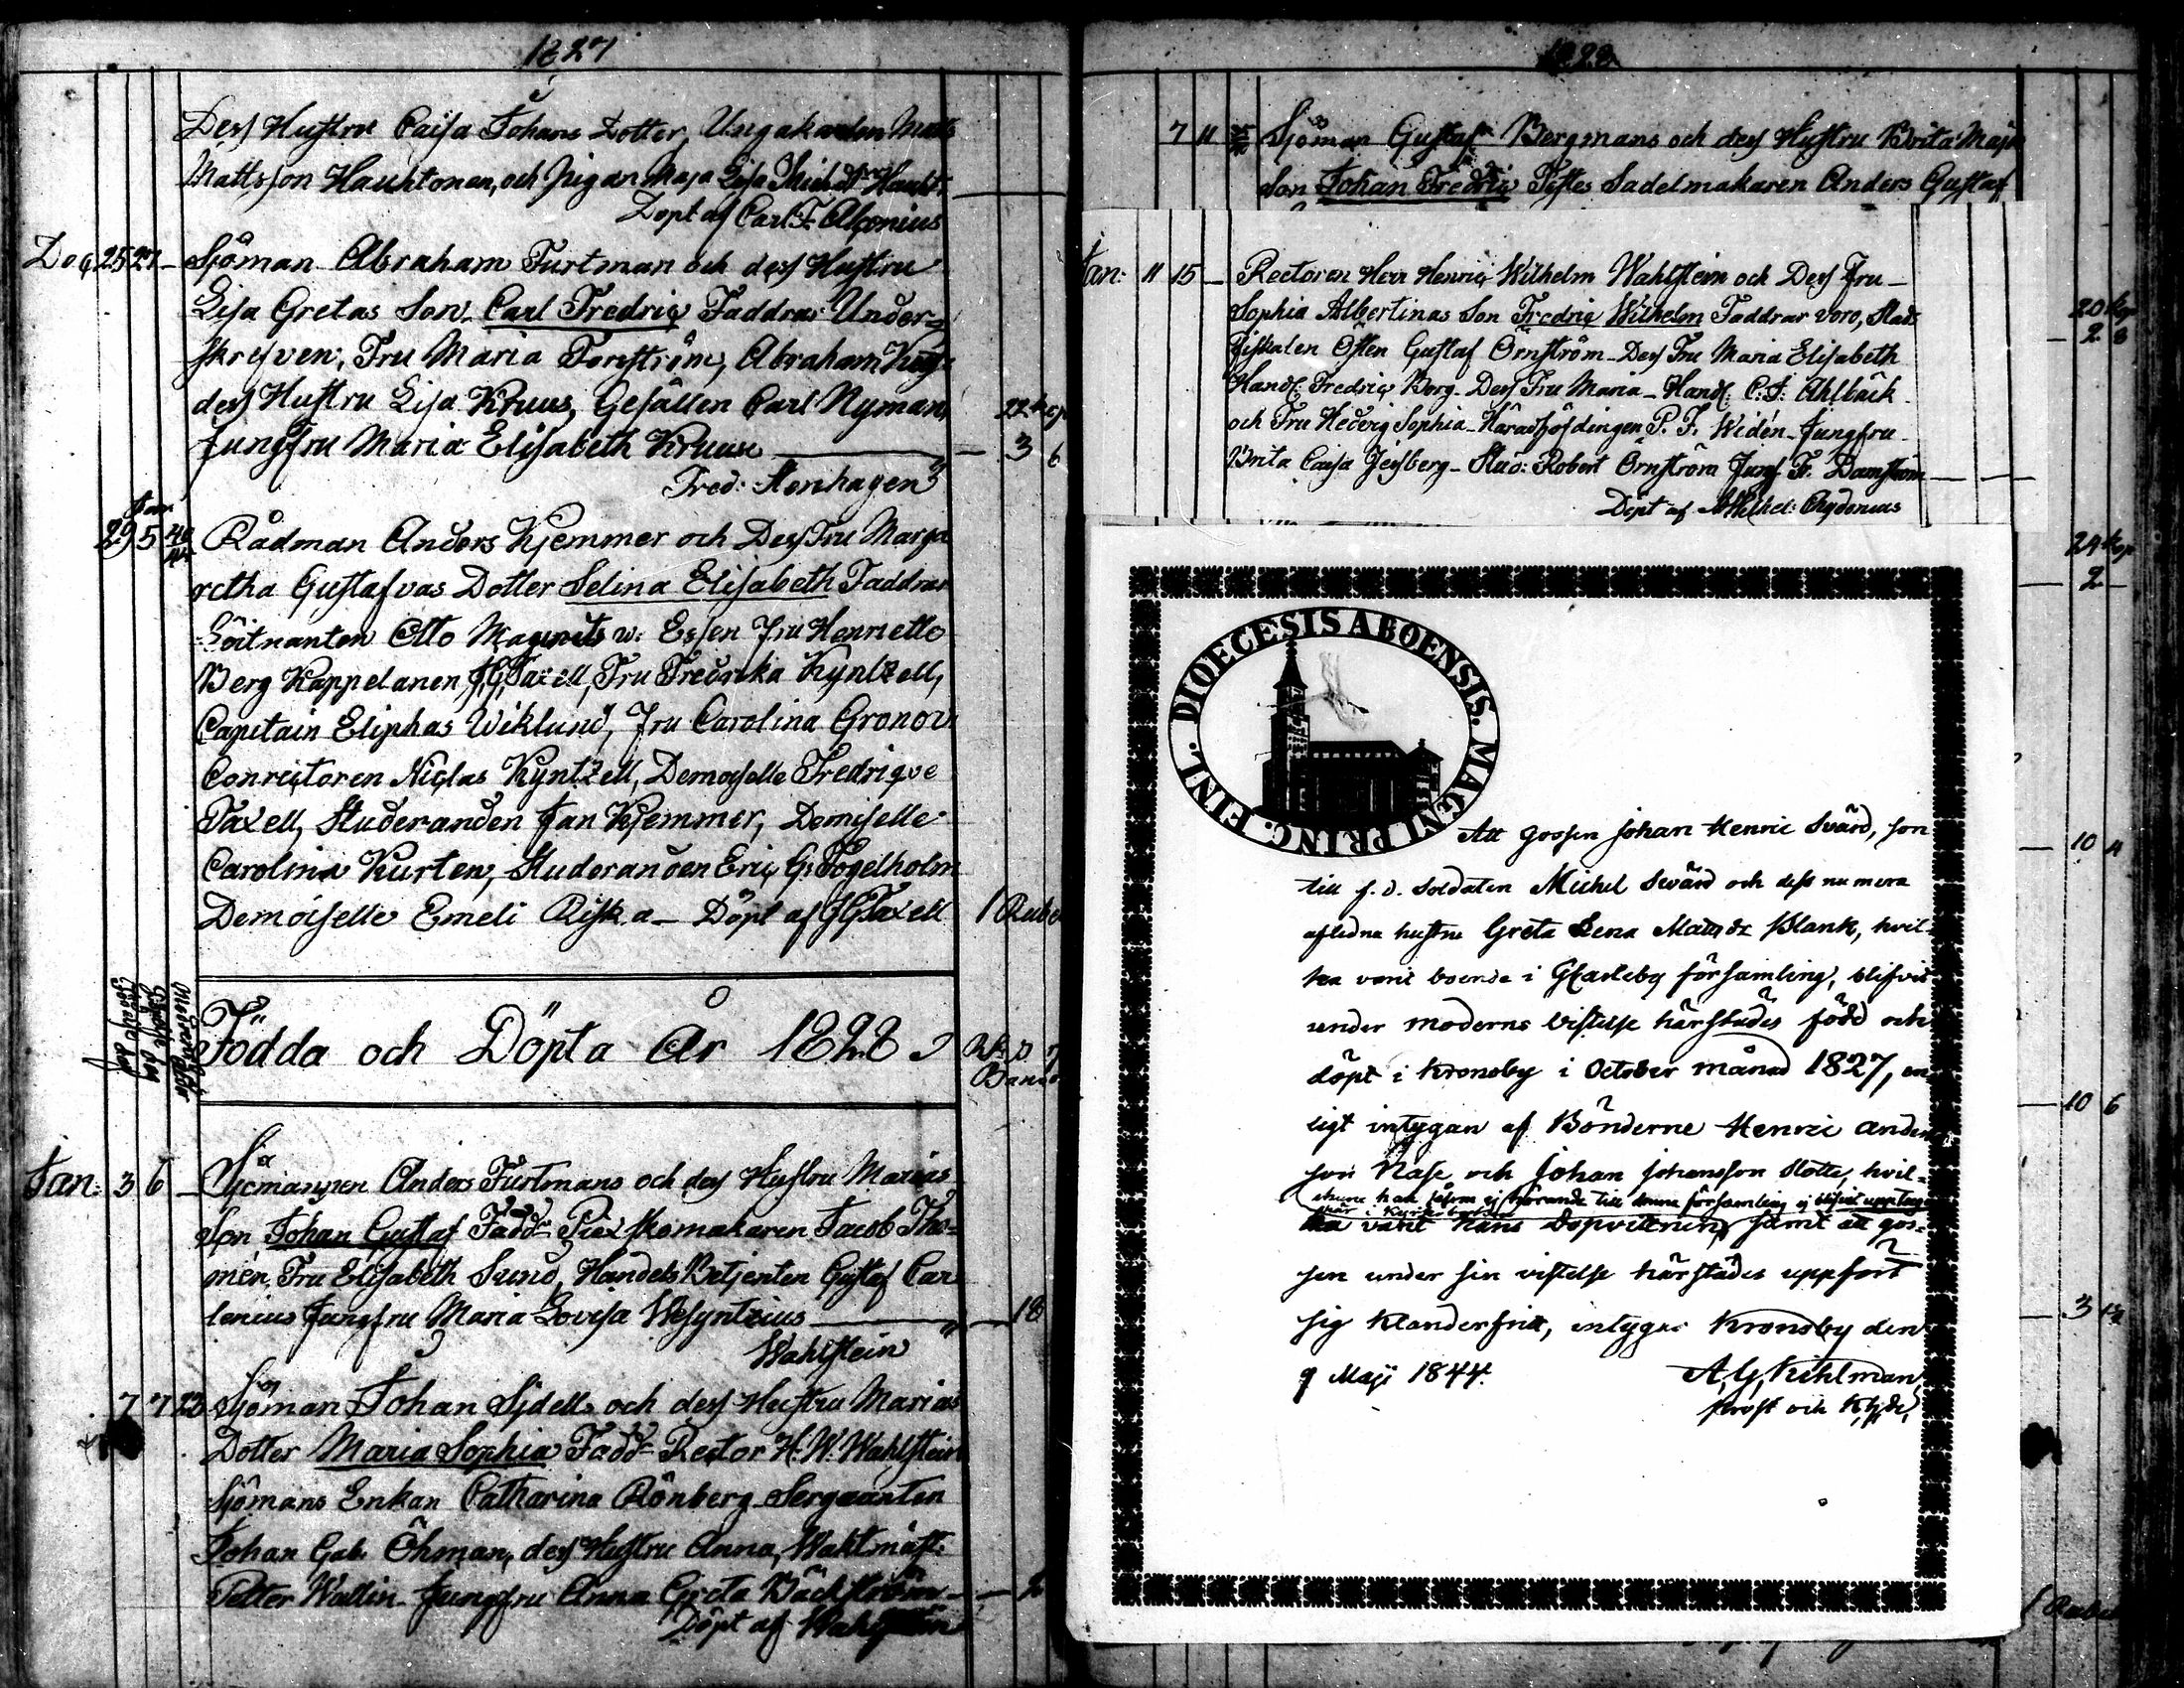 1827
Dess Hustru Caisa Johans Dotter, Ungakarlen Matts
Mattsson Hauhtonen, och Pigan Maja Lisa Michelsdr Hauht:
Döpt af Carl F. Alconius
Dec 25 27 – Sjöman Abraham Furtman och dess Hustru
Lisa Gretas Son Carl Fredric Faddrar Under-
skrefven, Fru Maria Forsström, Abraham
dess Hustru Lisa Kruus, Gesällen Carl Nyman, 22 kop
Jungfru Maria Elisabeth Kruus — 3 6
Fred: Stenhagen
Jan
29 5 40 Rådman Anders Kjemmer och Dess Fru Marga
retha Gustafvas Dotter Selina Elisabeth Faddrar
Löitnanten Otto Magnus v: Essen Fru Henriette
Berg Kappelanen J.G. Taxell, Fru Fredrika Kyntzell,
Capitain Eliphas Wiklund, Fru Carolina Gronov
Conrectoren Niclas Kyntzell, Demoiselle Fredrique
Taxell, Studeranden Jan Kjemmer, Demiselle
Carolina Kurten, Studeranden Eric G. Fogelholm
Demoiselle Emeli Riska – Döpt af JGTaxell 1 Rube
Födda och Döpta År 1828
Jan: 3 6 – Sjömannen Anders Furtmans och dess Hustru Marias
Son Johan Gustaf Fadd: Skomakaren Jacob Tho-
men, Fru Elisabeth Sund, Handels Betjenten Gustaf Car
lenius Jungfru Maria Lovisa Wesyntzius — 18
Wahlstein
7 7 22 Sjöman Johan Sjdells och dess Hustru Marias
Dotter Maria Sophia Fadd: Rector H. W. Wahlstein
Sjömans Enkan Catharina Rönberg Sergeanten
Johan Gab. Öhman, dess Hustru Anna, Waktmäst:
Petter Wallin Jungfru Anna Greta Bäckström —
Döpt af Wahlstein
1828
7 11 Sjöman Gustaf Bergmans och dess Hustru Brita Majas
Son Johan Fredric Testes Sadelmakaren Anders Gustaf
Jan: 11 15 – Rectoren Herr Henric Wilhelm Wahlstein och Dess Fru –
Sophia Albertinas Son Fredric Wilhelm Faddrar voro, Stads
Fiskalen Östen Gustaf Örnström – Dess Fru Maria Elisabeth
Handl: Fredric Borg – Dess Fru Maria – Handl: C. J. Ahlbäck
och Fru Hedvig Sophia – Häradshöfdingen P. F. Widén – Jungfru
Brita Caisa – Stud: Robert Örnström Jungf. Fr. Damström
Döpt af Wilhel: Chydenius
20 kop
2 8
24 kop
2 –
10 4
10 6
3
DIOECESIS ABOENSIS. MAGNI PRINC. FINL.
Att gossen Johan Henric Svärd, son
till f. d. Soldaten Michel Svärd och dess numera
aflidna hustru Greta Lena Matts dr Blank, hvil-
ka varit boende i Gkarleby församling, blifvit
under moderns vistelse härstädes född och
döpt i Kronoby i October månad 1827, en-
ligt intygan af Bönderne Henric Anders
son Nase och Johan Johansson Slotte, hvil-
ehuru han såsom ej hörande till denna församling ej blifvit upptagen
här i Kyrkoboken
ka varit hans Dopvittnen, samt att gos-
sen under sin vistelse härstädes uppfört
sig klanderfritt, intygar Kronoby den
9 Maji 1844. A. G. Kihlman
Prost och Khde
1 Rubel